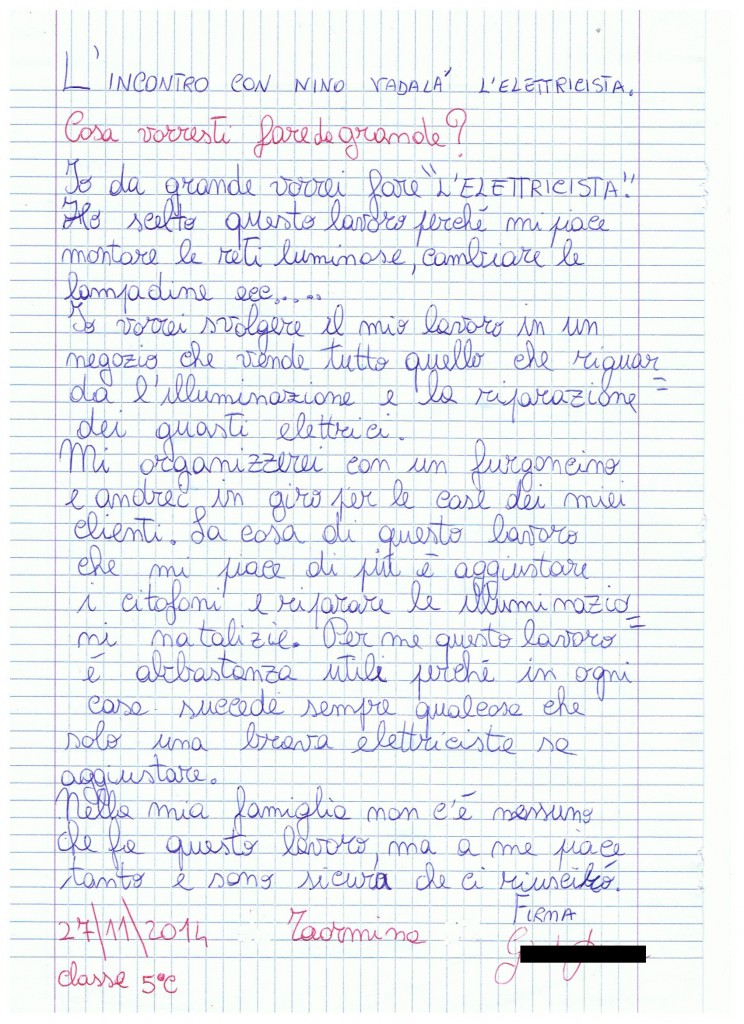 L'INCONTRO CON NINO VADALA' L'ELETTRICISTA.
Cosa vorresti fare da grande?
Io da grande vorrei fare "L'ELETTRICISTA".
Ho scelto questo lavoro perché mi piace
montare le reti luminose, cambiare le
lampadine ecc.....
Io vorrei svolgere il mio lavoro in un
negozio che vende tutto quello che riguar=
da l'illuminazione e la riparazione
dei guasti elettrici.
Mi organizzerei con un furgoncino
e andrei in giro per le case dei miei
clienti. La cosa di questo lavoro
che mi piace di più è aggiustare
i citofoni e riparare le illuminazio=
ni natalizie. Per me questo lavoro
è abbastanza utile perché in ogni
casa succede sempre qualcosa che
solo una brava elettricista sa
aggiustare.
Nella mia famiglia non c'è nessuno
che fa questo lavoro, ma a me piace
tanto e sono sicura che ci riuscirò.
FIRMA
27\11\2014 Taormina
classe 5°C